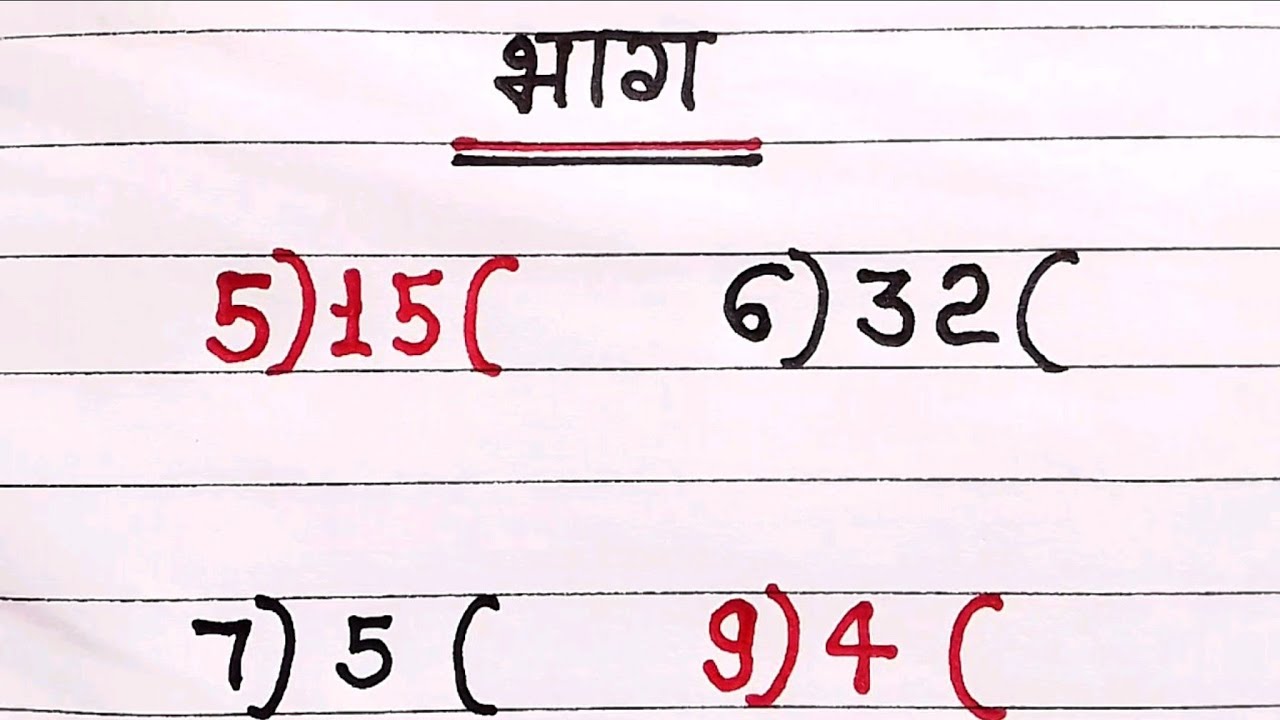 भाग
5)15( 6)32(
7)5( 9)4(